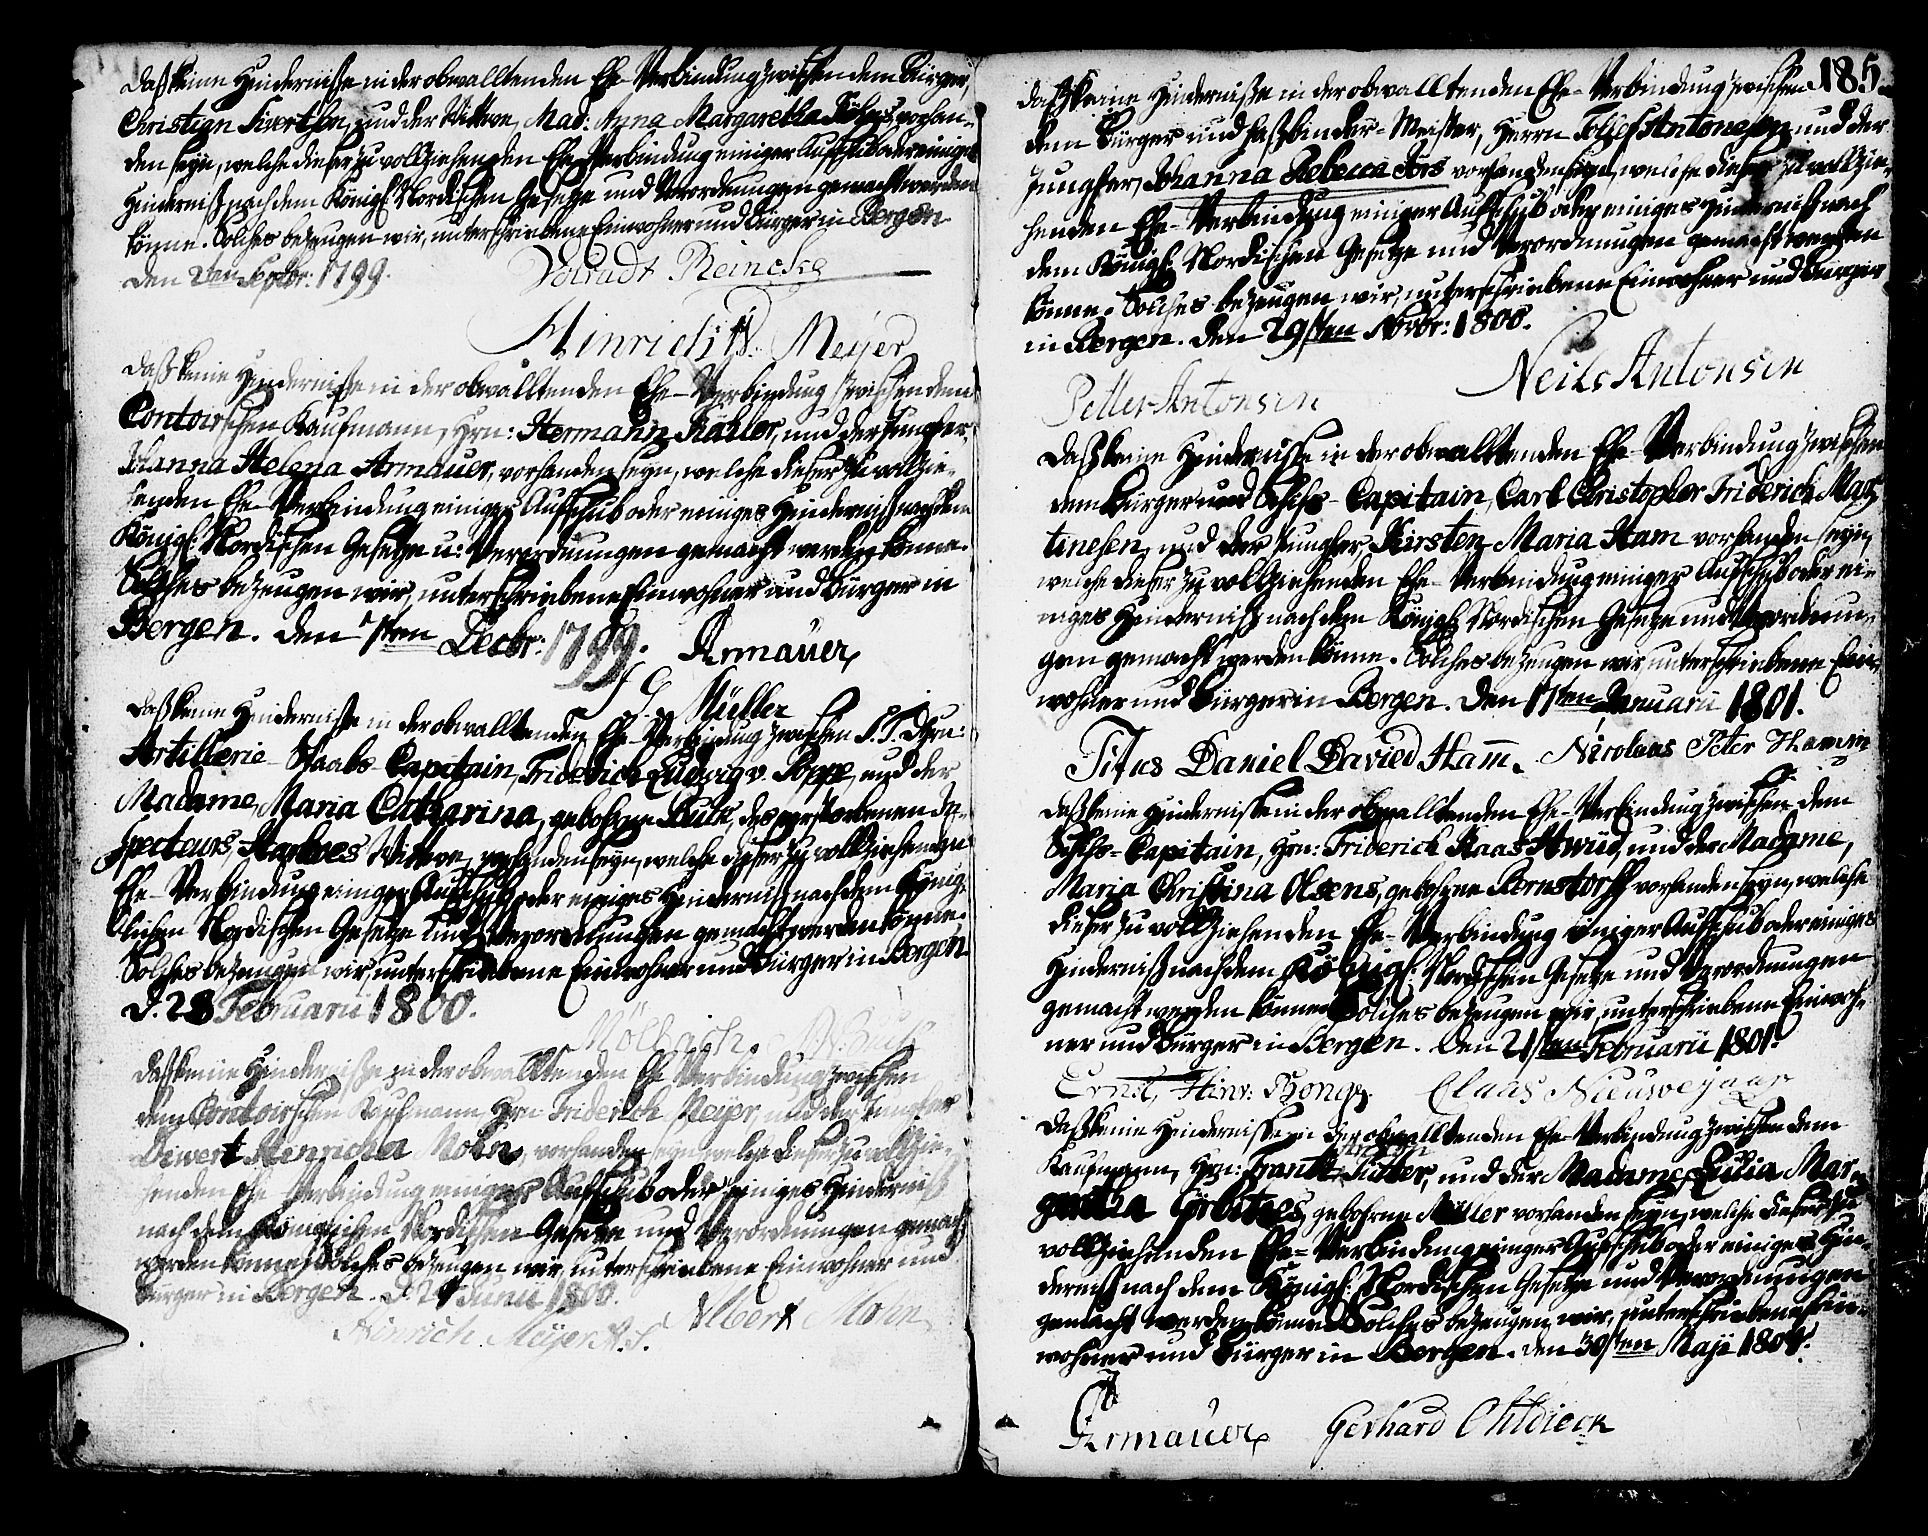 Daß keine Hinderniße in der obwalltenden Ehe-Verbindung zwischen dem Bürger,
Christian Sivertsen, und der Wittwe, Mad: Anna Margaretha vorhan-
den seyn, welche dieser zu vollziehenden Ehe-Verbindung einiger Aufschub oder einiges
Hinderniß nach dem Königl: Nordischen Gesetze und Verordnungen gemacht werden
könne. Solches bezeugen wir, unterschriebene Einwohner und Bürger in Bergen
den 2ten Septbr: 1799.
Volradt Reincke
Hinrich Meyer
Daß keine Hinderniße in der obwalltenden Ehe-Verbindung zwischen dem
Contoirschen Kaufmann, Hrn: Hermann Kahler, und der Jungfer,
Johanna Helena Armauer, vorhanden seyn, welche dieser zu vollzie-
henden Ehe-Verbindung einiger Aufschub oder einiges Hinderniß nach dem
Königl: Nordischen Gesetze u: Verordnungen gemacht werden könne.
Solches bezeugen wir, unterschriebene Einwohner und Bürger in
Bergen. den 7ten Decbr: 1799.
Armauer
J G Müller
Daß keine Hinderniße in der obwalltenden Ehe-Verbindung zwischen S. T. Hrn:
Artillerie-Staabs-Capitain, Friderich Ludwig v. Poppe, und der
Madame, Maria Catharina, gebohrne Buck, des verstorbenen In-
specteurs, Wittwe, vorhanden seyn, welche dieser zu vollziehenden
Ehe-Verbindung einiger Aufschub oder einiges Hinderniß nach dem König-
lichen Nordischen Gesetze und Verordnungen gemacht werden könne.
Solches bezeugen wir, unterschriebene Einwohner und Bürger in Bergen
d. 28 Februarii 1800.
Mölbach. Buck
Daß keine Hinderniße in der obwalltenden Ehe-Verbindung zwischen
dem Contoirschen Kaufmann, Hrn Friderich Meyer, und der Jungfer
Dewert Henricha Mohn, vorhanden seyn, welche dieser zu vollzie-
henden Ehe-Verbindung einiger Aufschub oder einiges Hinderniß
nach dem Königlichen Nordischen Gesetze und Verordnungen gemacht
werden könne. Solches bezeugen wir, unterschriebene Einwohner und
Bürger in Bergen. Junii 1800.
Albert Mohn
Hinrich Meyer
185.
Daß keine Hinderniße in der obwalltenden Ehe-Verbindung zwischen
dem Bürger und Faßbinder-Meister, Herrn Antonesen und der
Jungfer, Johanna Rebecca vorhanden seyn, welche dieser zu vollzie-
henden Ehe-Verbindung einiger Aufschub oder einiges Hinderniß nach
dem Königl: Nordischen Gesetze und Verordnungen gemacht werden
könne. Solches bezeugen wir, unterschriebene Einwohner und Bürger
in Bergen. den 29sten Novbr: 1800.
Neils Antonsen
Petter Antonsen
Daß keine Hinderniße in der obwalltenden Ehe-Verbindung zwischen
dem Bürger und Schifs-Capitain, Carl Christopher Friderich Mar-
tinesen, und der Jungfer, Kirsten Maria Ham vorhanden seyn,
welche dieser zu vollziehenden Ehe-Verbindung einiger Aufschub oder ei-
niges Hinderniß nach dem Königl: Nordischen Gesetze und Verordnun-
gen gemacht werden könne. Solches bezeugen wir, unterschriebene Ein-
wohner und Bürger in Bergen. Den 17ten Januarii 1801.
Titus Daniel Davied Ham̅. Nicolaus Peter Hamm
Daß keine Hinderniße in der obwalltenden Ehe-Verbindung zwischen dem
Schifs-Capitain, Hrn: Friderich Kaas Hwiid, und der Madame,
Maria Christina Olsens, gebohrne Bernstorff vorhanden seyn, welche
dieser zu vollziehenden Ehe-Verbindung einiger Aufschub oder einiges
Hinderniß nach dem Königl: Nordischen Gesetze und Verordnungen
gemacht werden könne. Solches bezeugen wir, unterschriebene Einwoh-
ner und Bürger in Bergen. Den 21sten Februarii 1801.
Ernst Hinr: Claas Nieuwejaar
Daß keine Hinderniße in der obwalltenden Ehe-Verbindung zwischen dem
Kaufmann, Hrn: und der Madame, Lucia Mar-
gretha gebohrne Müller vorhanden seyn, welche dieser zu
vollziehenden Ehe-Verbindung einiger Aufschub oder einiges Hin-
derniß nach dem Königl: Nordischen Gesetze und Verordnungen
gemacht werden könne. Solches bezeugen wir, unterschriebene Ein-
wohner und Bürger in Bergen. den 30sten Maji 1801.
Armauer Gerhard Ohldieck